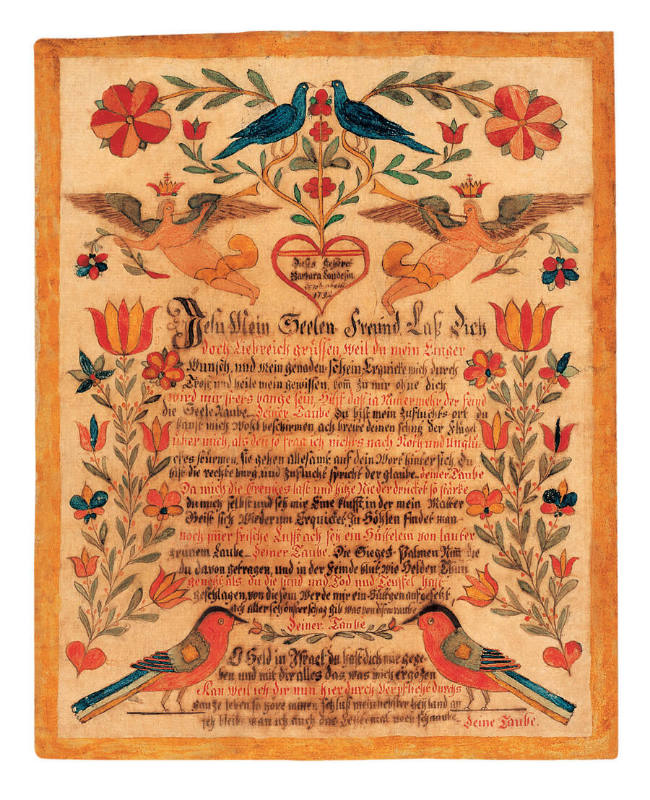 Dieses gehöret
Barbara Landesin
1792
Jesu Mein Seelen Freund, Laß Dich
doch Liebreich grüssen weil du mein Einger
Wunsch, und mein genaden schein Erquicke mich durch
Trost und heile mein gewissen, kom zu mir ohne dich
wird mir stets bange sein, daß ja Nimermehr der Feind
die Seele Raube. deiner Taube Du bist mein Zufluchts ort du
kanst mich Wohl beschirmen ach breite deinen schutz der Flügel
über mich, als den so frag ich nichts nach Noth und Unglü
ckes stürmen, Sie gehen allesamt auf dein Wort hinter sich, Du
bist die rechte burg, und Zuflucht spricht der glaube. deiner Taube
Da mich die Creutzes last und hitze Nieder drücket so stärke
du mich selbst und sey mir Eine klufft in der mein Matter
Geist sich Wiederum Erquicket, Zu Höhlen findet man
noch imer frische Lufft ach sey ein Hüttelein von lauter
grünem Laube. Deiner Taube. Die Sieges Palmen die
du davon getragen, und in der Feinde blut wie Helden
als du die sünd und Tod und Teuffel hast
geschlagen, von diesem Werde mir ein aufgesteckt
ach aller schönster schatz gib was von deinem raube
Deiner Taube
O Held in Israel du hast dich mir gege-
ben und mit dir alles das, was mich ergötzen
Kan weil ich dir nun hier durch verpflicht durchs
gantze leben so höre meinen schluß mein liebster heyland an
ich bleib wan ich auch das Letztemal noch schnaube Deine Taube.